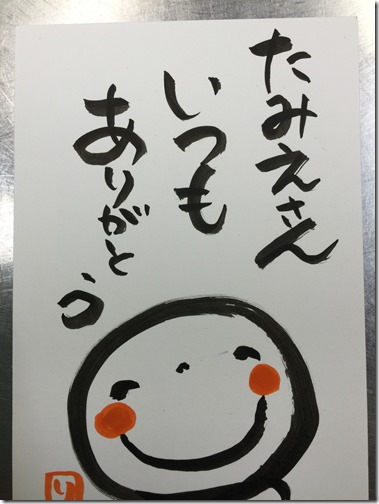 たみえさん
いつも
ありがとう
り